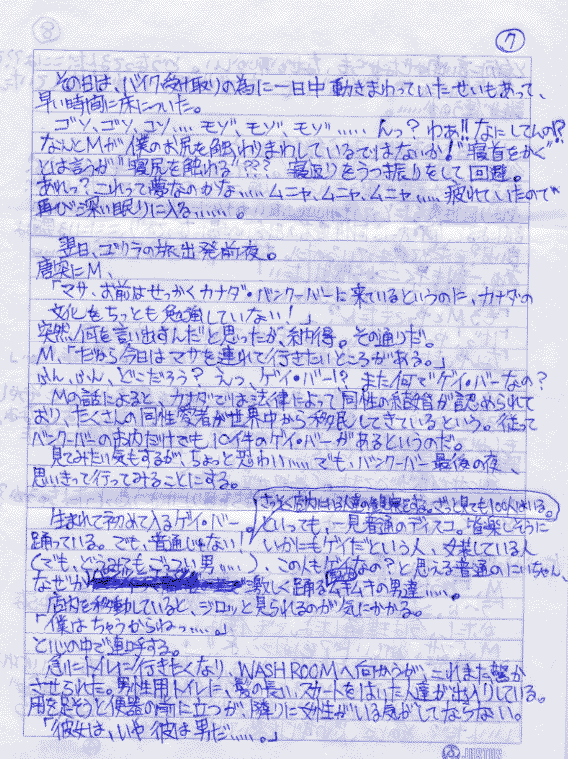 7
その日は、バイク受け取りの為に一日中動きまわっていたせいもあって、
早い時間に床についた。
ゴソ、ゴソ、ゴソ.... モゾ、モゾ、モゾ..... んっ？わぁ!!なにしてんの!?
なんとMが僕のお尻を触わりまわしているではないか！"寝首をかく"
とは言うが"寝尻を触わる"??? 寝返りをうつ振りをして回避。
あれっ？これって夢なのかな..... ムニャ、ムニャ、ムニャ..... 疲れていたので
再び深い眠りに入る.......。
翌日、ゴリラの旅出発前夜。
唐突にM、
「マサ、お前はせっかくカナダ・バンクーバーに来ているというのに、カナダの
文化をちっとも勉強していない！」
突然何を言い出すんだと思ったが、納得。その通りだ。
M、「だから今日はマサを連れて行きたいところがある。」
ふん、ふん、どこだろう？ えっ、ゲイ・バー!? また何でゲイ・バーなの？
Mの話によると、カナダでは法律によって同性の結婚が認められて
おり、たくさんの同性愛者が世界中から移民してきているという。従って
バンクーバーの市内だけでも、10イキのゲイ・バーがあるというのだ。
見てみたい気もするが、ちょっと恐わい..... でも、バンクーバー最後の夜、
思いきって行ってみることにする。
さっそく店内にいる人達の
ざっと見ても100人はいる。
生まれて初めて入るゲイ・バー。といっても、一見普通のディスコ。皆楽しそうに
踊っている。でも、普通じゃない！ いかにもゲイだという人、女装している人
(でも、どう見てもごっつい男.....)、この人もゲイなの？と思える普通のにいちゃん、
なぜか 激しく踊るムキムキの男達.....。
店内を移動していると、ジロッと見られるのが気にかかる。
「僕はちゃうからねっ.....。」
と心の中で連呼する。
急にトイレに行きたくなり、WASHROOMへ向かうが、これまた驚か
させられた。男性用トイレに、髪の長い、スカートをはいた人達が出入りしている。
用を足そうと便器の前に立つが、隣りに女性がいる気がしてならない。
「彼女は、いや彼は男だ.....。」